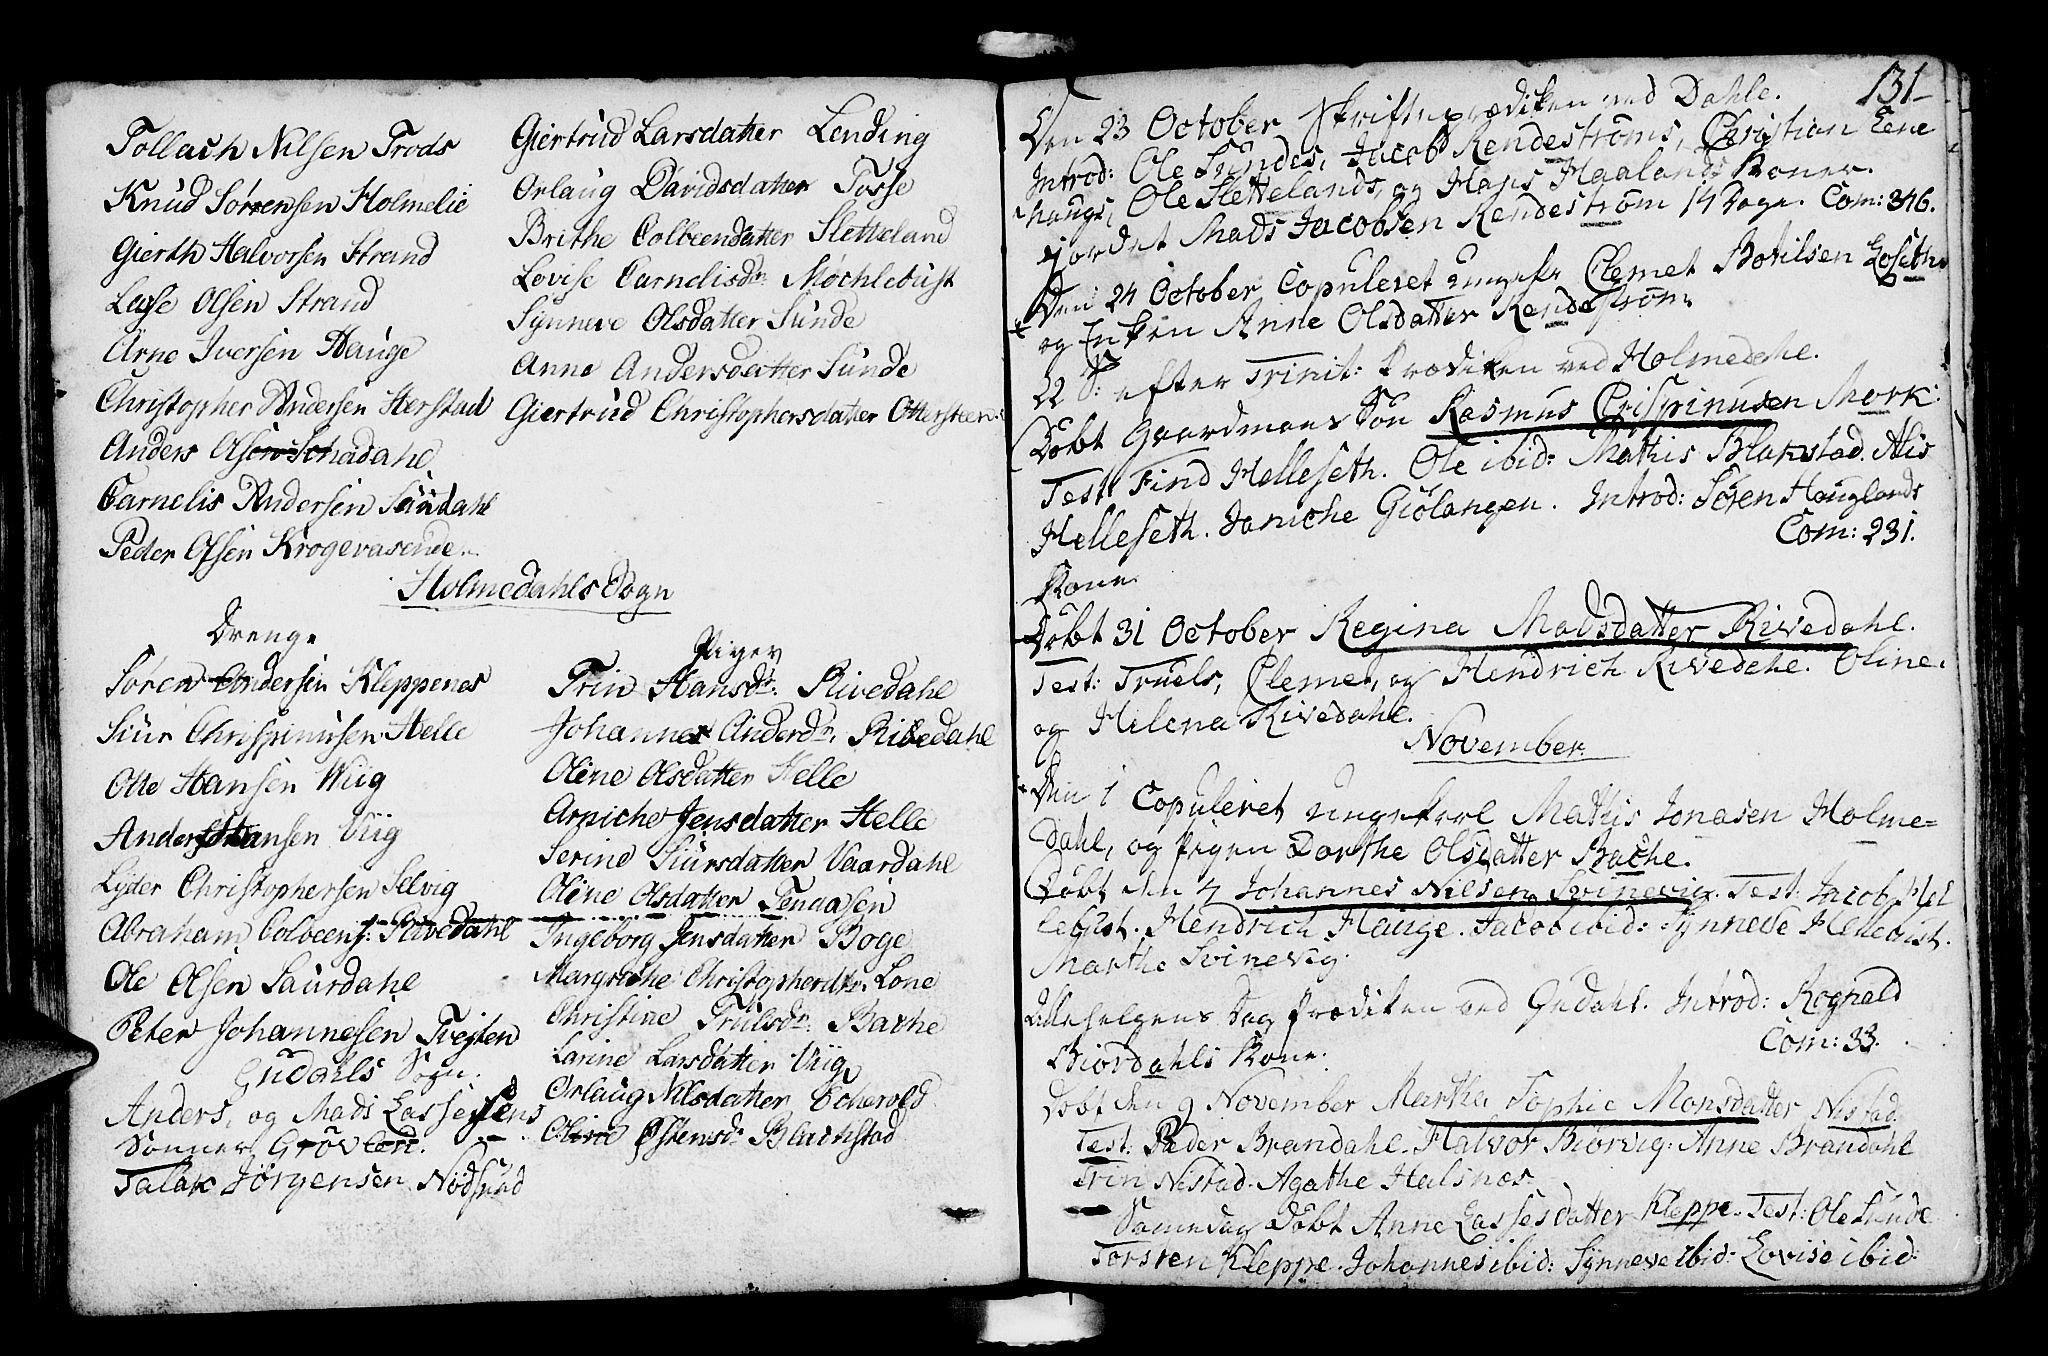 Tollach Nilsen Trods
Knud Sørrensen Holmelie
Gierth Halvorsen Strand
Lasse Olsen Strand
Arne Iversen Hauge
Christopher Andersen Herstad
Anders Olsen Schadahl
Carnelis Andersen Sundahl
Peder Olsen Krogevasende
Giertrud Larsdatter Lending
Orlaug Davidsdatter Tosse
Brithe Colbeensdatter Sletteland
Lovise Carnelisdr: Møchlebust
Synneve Olsdatter Sunde
Anna Andersdatter Sunde
Giertrud Christophersdatter Ottersteen
Holmedahls Sogn
Drenge
Søren Andersen Kleppenes
Siur Chrispinusen Helle
Otte Hansen Wiig
Anders Hansen Viig
Lyder Christophersen Selvig
Abraham Colbeens: Rivedahl
Ole Olsen Saurdahl
Peter Johannesen Tveiten
Gudahls Sogn.
Anders, og Mads Lassesens
Sønner Grøvlen.
Salak Jørgensen Nødsund
Piger
Trin Hansdr: Rivedahl
Johannes Andersdr. Rivedahl
Oline Olsdatter Helle
Arniche Jensdatter Helle
Serine Siursdatter Vaardahl
Oline Olsdatter Tenaasen
Ingeborg Jensdatter Boge
Margrethe Christophersdtr. Lone
Christine Trulsdr: Bache
Larine Larsdatter Viig
Orlaug Nilsdatter Echerold
Oline Østensdr Blachstad
131
Den 23 October Skrifteprædiken ved Dahle.
Introd: Ole Sundes, Jacob Rendestrøms, Christian Eene
hauge, Ole Slettelands, og Hans Haalands Koner.
jordet Mads Jacobsen Rendestrøm 14 Dage. Com: 346.
Den 24 October Copuleret ungkarl Clemet Botilsen Loseth
og Enken Anne Olsdatter Rendestrøm
22 S: efter Trinit: Prædiken ved Holmedahl.
Døbt Gaardmans Søn Rasmus Crispinusen Mork:
Test: Find Helleseth. Ole ibid: Mathis Blakstad. Alis
Helleseth. Joniche Giølangen. Introd: Søren Hauglands
Kone. Com: 231.
Døbt 31 October Regina Madsdatter Rivedahl.
Test: Truels, Clemet, og Hendrich Rivedahl. Oline
og Helena Rivedahl.
November
Den 1 Copuleret ungekarl Mathis Jonasen Holme=
dahl, og Pigen Dorthe Olsdatter Bache.
Døbt den 7 Johannes Nilsen Svinevig. Test: Jacob Hel
lebust. Hendrich Hauge. Jacob ibid: Synneve Hellebust.
Marthe Svinevig.
Allehelgens Dag Prædiken ved Gudahl. Introd: Rognald
Biordahls Kone. Com: 33.
Døbt den 9 November Martha Sophie Monsdatter Nistad.
Test: Peder Brandahl. Halvor Biørvig: Anne Brandahl
Trin Nistad. Agathe Halsnæs.
Samedag Døbt Anne Lassesdatter Kleppe. Test: Ole Sunde
Torsten Kleppe. Johannes ibid: Synneve ibid: Lovise ibid: